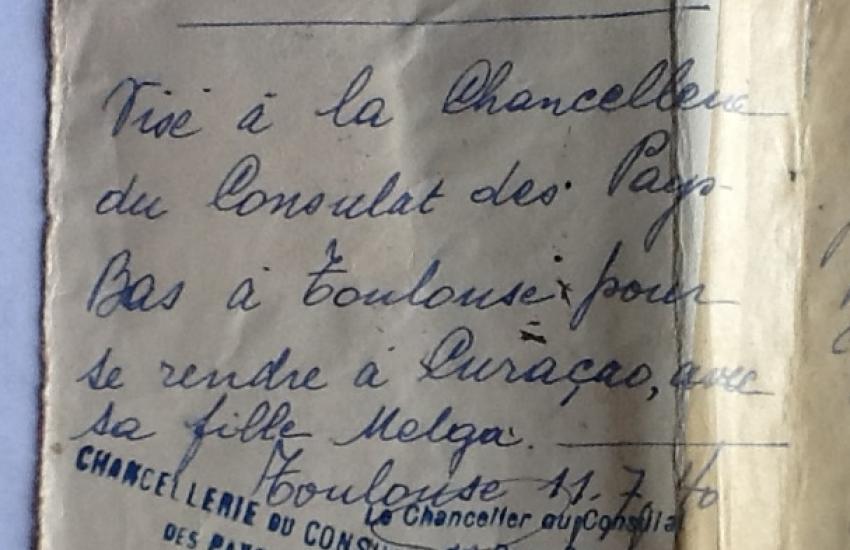 Visé à la Chancellerie
du Consulat des Pays-
Bas à Toulouse pour
se rendre à Curaçao, avec
sa fille Melga.
Toulouse 11.7.40
CHANCELLERIE DU CONSU
Le Chancelier du Consulat
DES PAYS